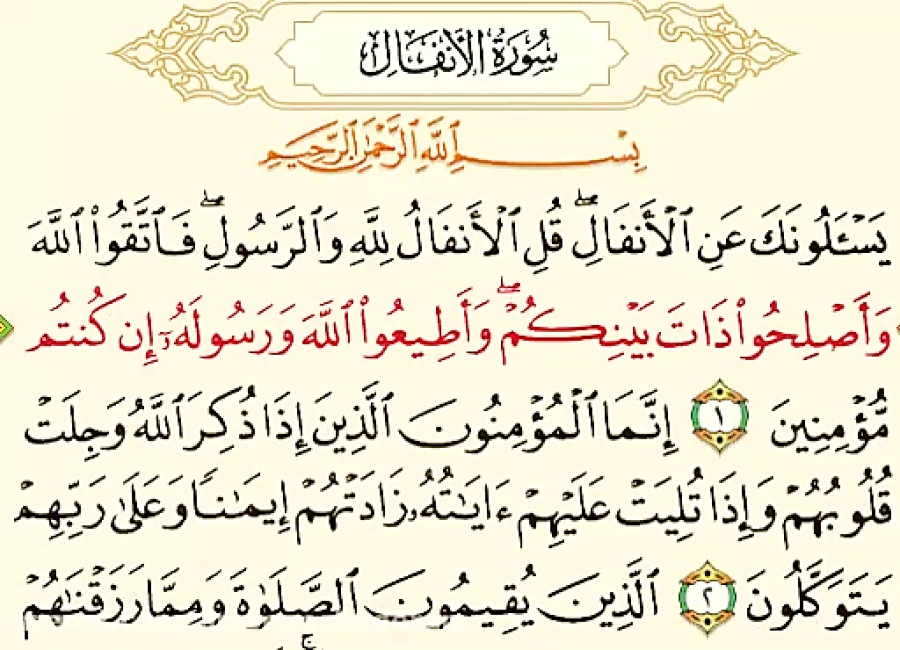 سُورَةُ الأَنفَالِ
بِسْمِ ٱللَّهِ ٱلرَّحْمَٰنِ ٱلرَّحِيمِ
يَسْـَٔلُونَكَ عَنِ ٱلْأَنفَالِ ۖ قُلِ ٱلْأَنفَالُ لِلَّهِ وَٱلرَّسُولِ ۖ فَٱتَّقُوا۟ ٱللَّهَ
وَأَصْلِحُوا۟ ذَاتَ بَيْنِكُمْ ۖ وَأَطِيعُوا۟ ٱللَّهَ وَرَسُولَهُۥٓ إِن كُنتُم
مُّؤْمِنِينَ ١ إِنَّمَا ٱلْمُؤْمِنُونَ ٱلَّذِينَ إِذَا ذُكِرَ ٱللَّهُ وَجِلَتْ
قُلُوبُهُمْ وَإِذَا تُلِيَتْ عَلَيْهِمْ ءَايَـٰتُهُۥ زَادَتْهُمْ إِيمَـٰنًا وَعَلَىٰ رَبِّهِمْ
يَتَوَكَّلُونَ ٢ ٱلَّذِينَ يُقِيمُونَ ٱلصَّلَوٰةَ وَمِمَّا رَزَقْنَـٰهُمْ